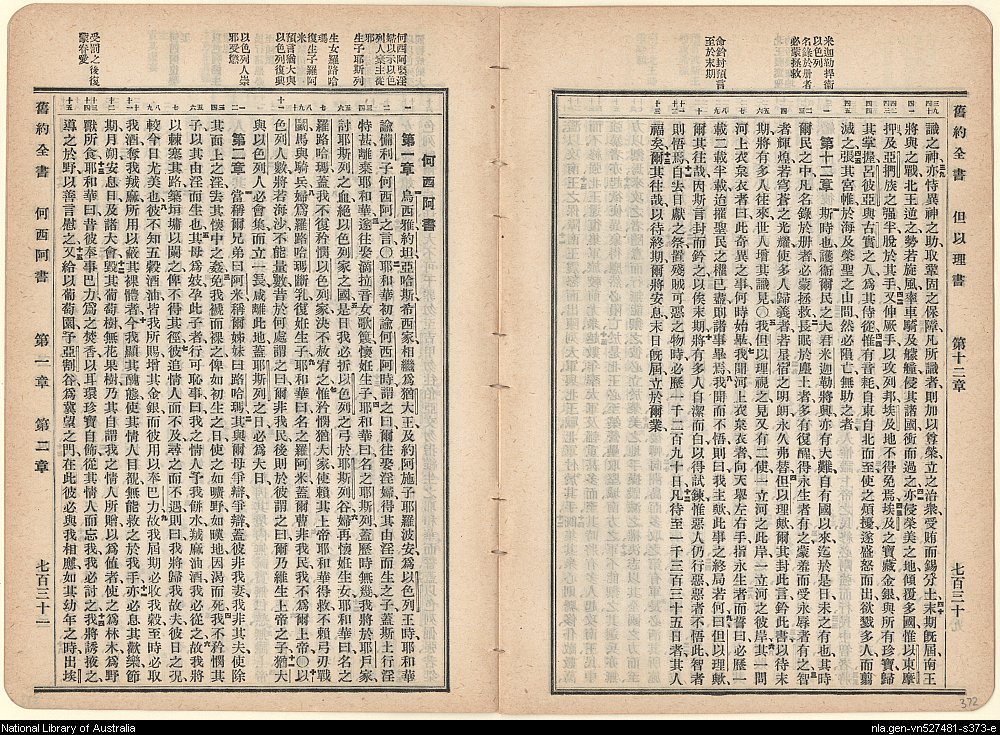 米迦勒捍衛
以色列
名錄於冊者
必蒙拯救
命鈐封預言
至於末期
舊約全書 但以理書 第十二章
識之神亦恃異神之助取鞏固之保障凡所識者則加以尊榮立之治衆受賄而錫分土末期旣屆南王
將與之戰北王逆之勢若旋風率車騎及艨艟侵其諸國衝而過之亦侵榮美之地傾覆多國惟以東摩
押及亞捫族之强半脫於其手又伸厥手以攻列邦埃及地不得免焉埃及之寶藏金銀與所有珍寶歸
其掌握呂彼亞與古實之人爲其侍從惟有音耗自東自北而至使之煩擾遂盛怒而出欲戮多人而翦
滅之張其宮帷於海及榮聖之山間然必陷亡無助之者
第十二章 斯時也護衛爾民之大君米迦勒將興亦有大難自有國以來迄於是日未之有也其時
爾民之中凡名錄於册者必蒙拯救長眠於塵土者多有復醒得永生者有之蒙羞而受永辱者有之智
者輝煌若穹蒼之光耀使多人歸義者若星宿之明朗永久弗替但以理歟爾其封此言鈐此書以待末
期將有多人往來世人增其識見〇我但以理視之見又有二使一立河之此岸一立河之彼岸其一問
河上衣枲衣者曰此奇異之事何時始畢我聞河上衣枲衣者向天舉左右手指永生者而誓曰必歷一
載二載半載迨擢聖民之權已盡則諸事畢焉我聞而不悟則曰我主歟此事之終局若何曰但以理歟
爾其往哉因斯言封而鈐之以俟末期將有多人自潔而白以得試鍊惟惡人仍行惡惡者不悟此智者
則悟焉自去日獻之祭置殘賊可惡之物時必歷一千二百九十日凡待至一千三百三十五日者其人
福矣爾其往哉以待終期爾將安息末日旣屆立於爾業
何西阿娶淫
婦以示以色
列人棄主從
邪
生子耶斯列
生女羅路哈
瑪
復生子羅阿
米
預言猶大與
以色列復興
以色列人崇
邪受懲
受罰之後復
蒙眷愛
何西阿書
第一章 烏西雅約坦亞哈斯希西家相繼爲猶大王及約阿施子耶羅波安爲以色列王時耶和華
諭備利子何西阿之言〇耶和華初諭何西阿時謂之曰爾往娶淫婦得其由淫而生之子蓋斯土行淫
特甚離棄耶和華遂往娶滴拉音女歌篾懷妊生子耶和華曰名之耶斯列蓋歷時無幾我將於耶戶家
討耶斯列之血絕以色列家之國是日我必折以色列之弓於耶斯列谷婦再懷妊生女耶和華曰名之
羅路哈瑪蓋我不復矜憫以色列家決不赦宥之惟矜憫猶大家使賴其上帝耶和華得救不賴弓刃戰
鬭馬與騎兵婦爲羅路哈瑪斷乳復妊生子耶和華曰名之羅阿米蓋爾曹非我民我不爲爾上帝〇以
色列人數將若海沙不能量數昔於何處謂之曰爾非我民後則於彼謂之曰爾乃維生上帝之子猶大
與以色列人必會集而立一長咸離此地蓋耶斯列之日必爲大日
第二章 當稱爾兄弟曰阿米稱爾姊妹曰路哈瑪其與爾母爭辯爭辯蓋彼非我妻我非其夫使除
其面上之淫去其懷中之姦免我褫而裸之俾如初生之日使之如曠野如暵地因渴而死我不矜憫其
子以其由淫而生也其母爲妓孕此子者行可恥事曰我之情人予我餅水羢麻油酒我必從之故我將
以棘塞其路築垣墉以闌之俾不得其徑彼追情人而不及尋之而不遇則曰我將歸我故夫彼日之况
較今日尤美也彼不知五穀酒油皆我所賜增其金銀而彼用以奉巴力故我屆期必收我穀至時必取
我酒奪我羢麻所用以蔽其裸體者今我顯其醜態使其情人目覩無能救之於我手亦必息其歡樂節
期月朔安息日及諸大會毀其葡萄樹無花果樹乃其自謂我之情人所贈以爲値者使之爲林木爲野
獸所食耶和華曰昔彼奉事巴力爲之焚香以耳環珍寶自飾從其情人而忘我我必討之我將誘掖之
導之於野以善言慰之又給以葡萄園予亞割谷爲冀望之門在此彼必與我相應如其幼年之時出埃
舊約全書 何西阿書 第一章 第二章
372
National Library of Australia
nla.gen-vn527481-s373-e